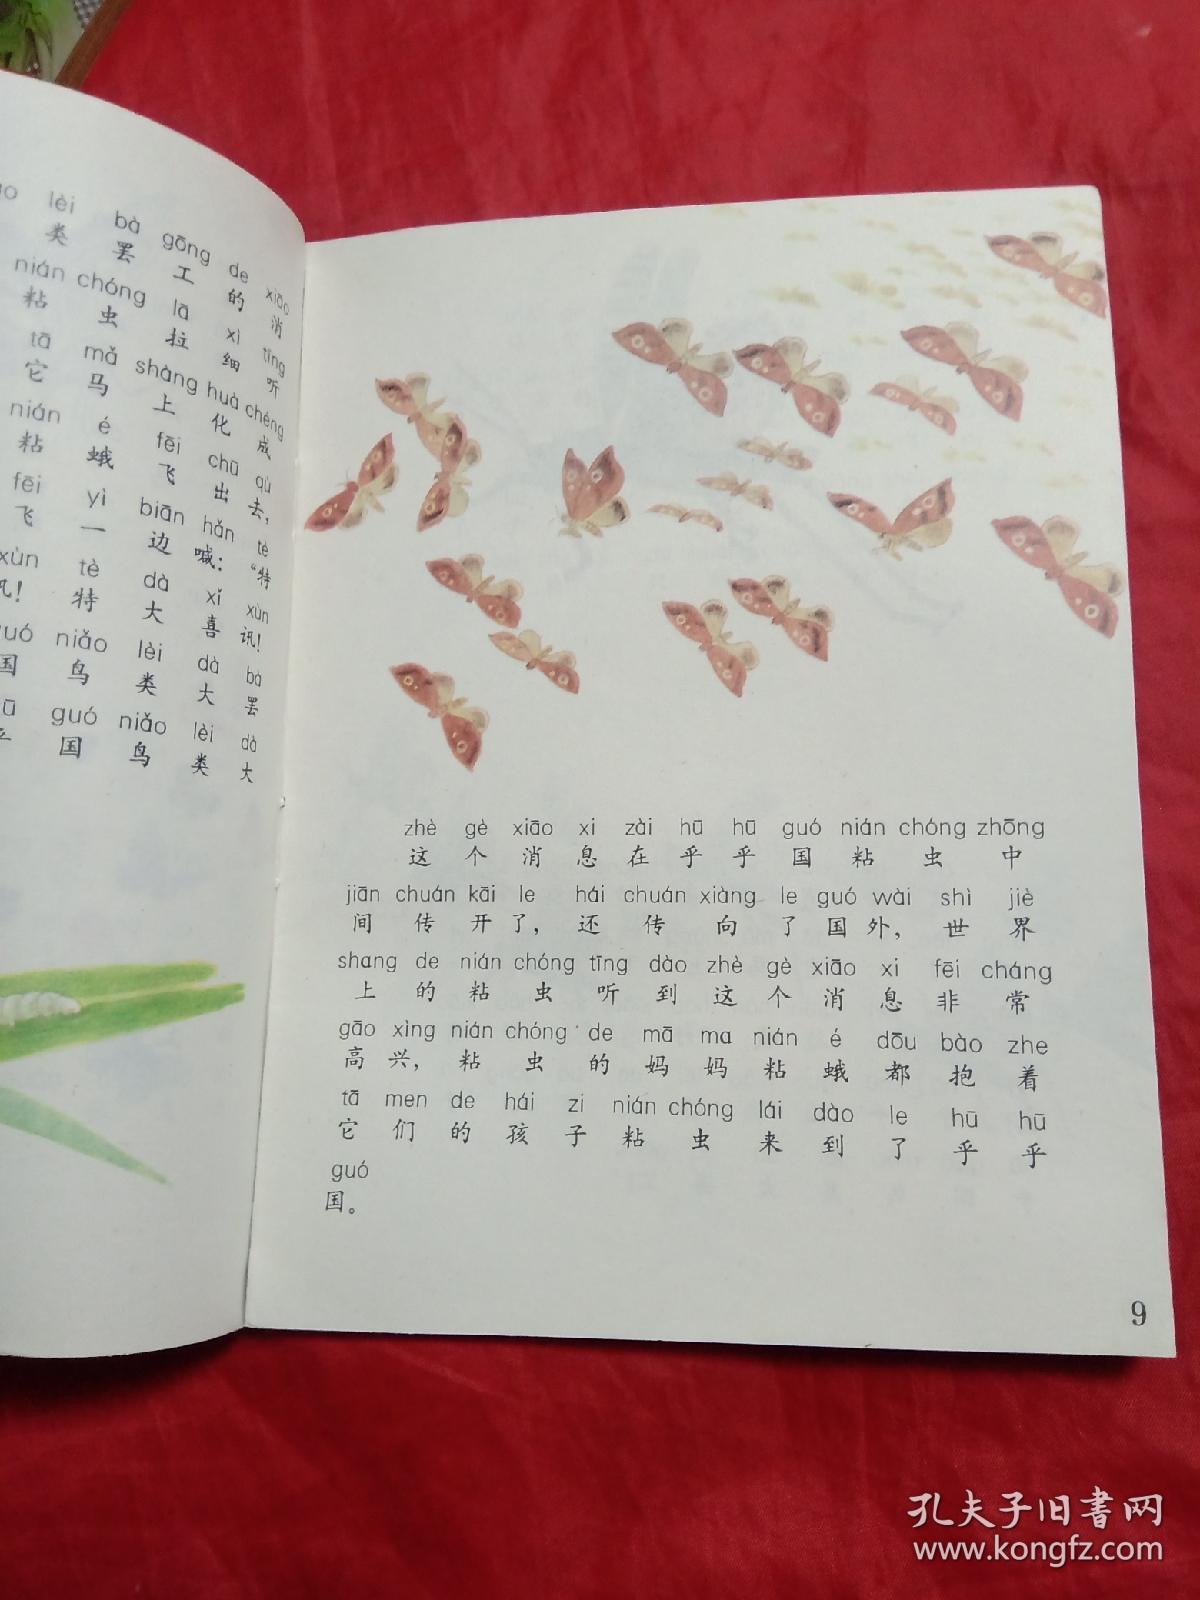 lèi bà gōng de xiāo
类罢工的消
nián chóng lā xì tīng
粘虫拉细听
tā mǎ shàng huà chéng
它马上化成
nián é fēi chū qù
粘蛾飞出去，
fēi yì biān hǎn tè
飞一边喊：“特
xùn tè dà xǐ xùn
讯！特大喜讯！
guó niǎo lèi dà bà
国鸟类大罢
guó niǎo lèi dà
国鸟类大
zhè gè xiāo xi zài hū hū guó nián chóng zhōng
这个消息在乎乎国粘虫中
jiān chuán kāi le hái chuán xiàng le guó wài shì jiè
间传开了，还传向了国外，世界
shang de nián chóng tīng dào zhè gè xiāo xi fēi cháng
上的粘虫听到这个消息非常
gāo xìng nián chóng de mā ma nián é dōu bào zhe
高兴，粘虫的妈妈粘蛾都抱着
tā men de hái zi nián chóng lái dào le hū hū
它们的孩子粘虫来到了乎乎
guó
国。
9
孔夫子旧书网
www.kongfz.com